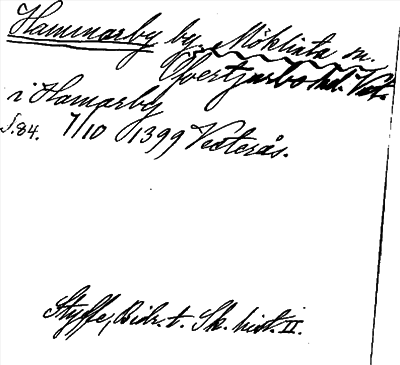 Hammarby by, Möklinta sn.
Övertjurbo hd. Vst.
i Hamarby
s. 84. 7/10 1399 Västerås.
Styffe, Bidr. t. Sk. hist. II.